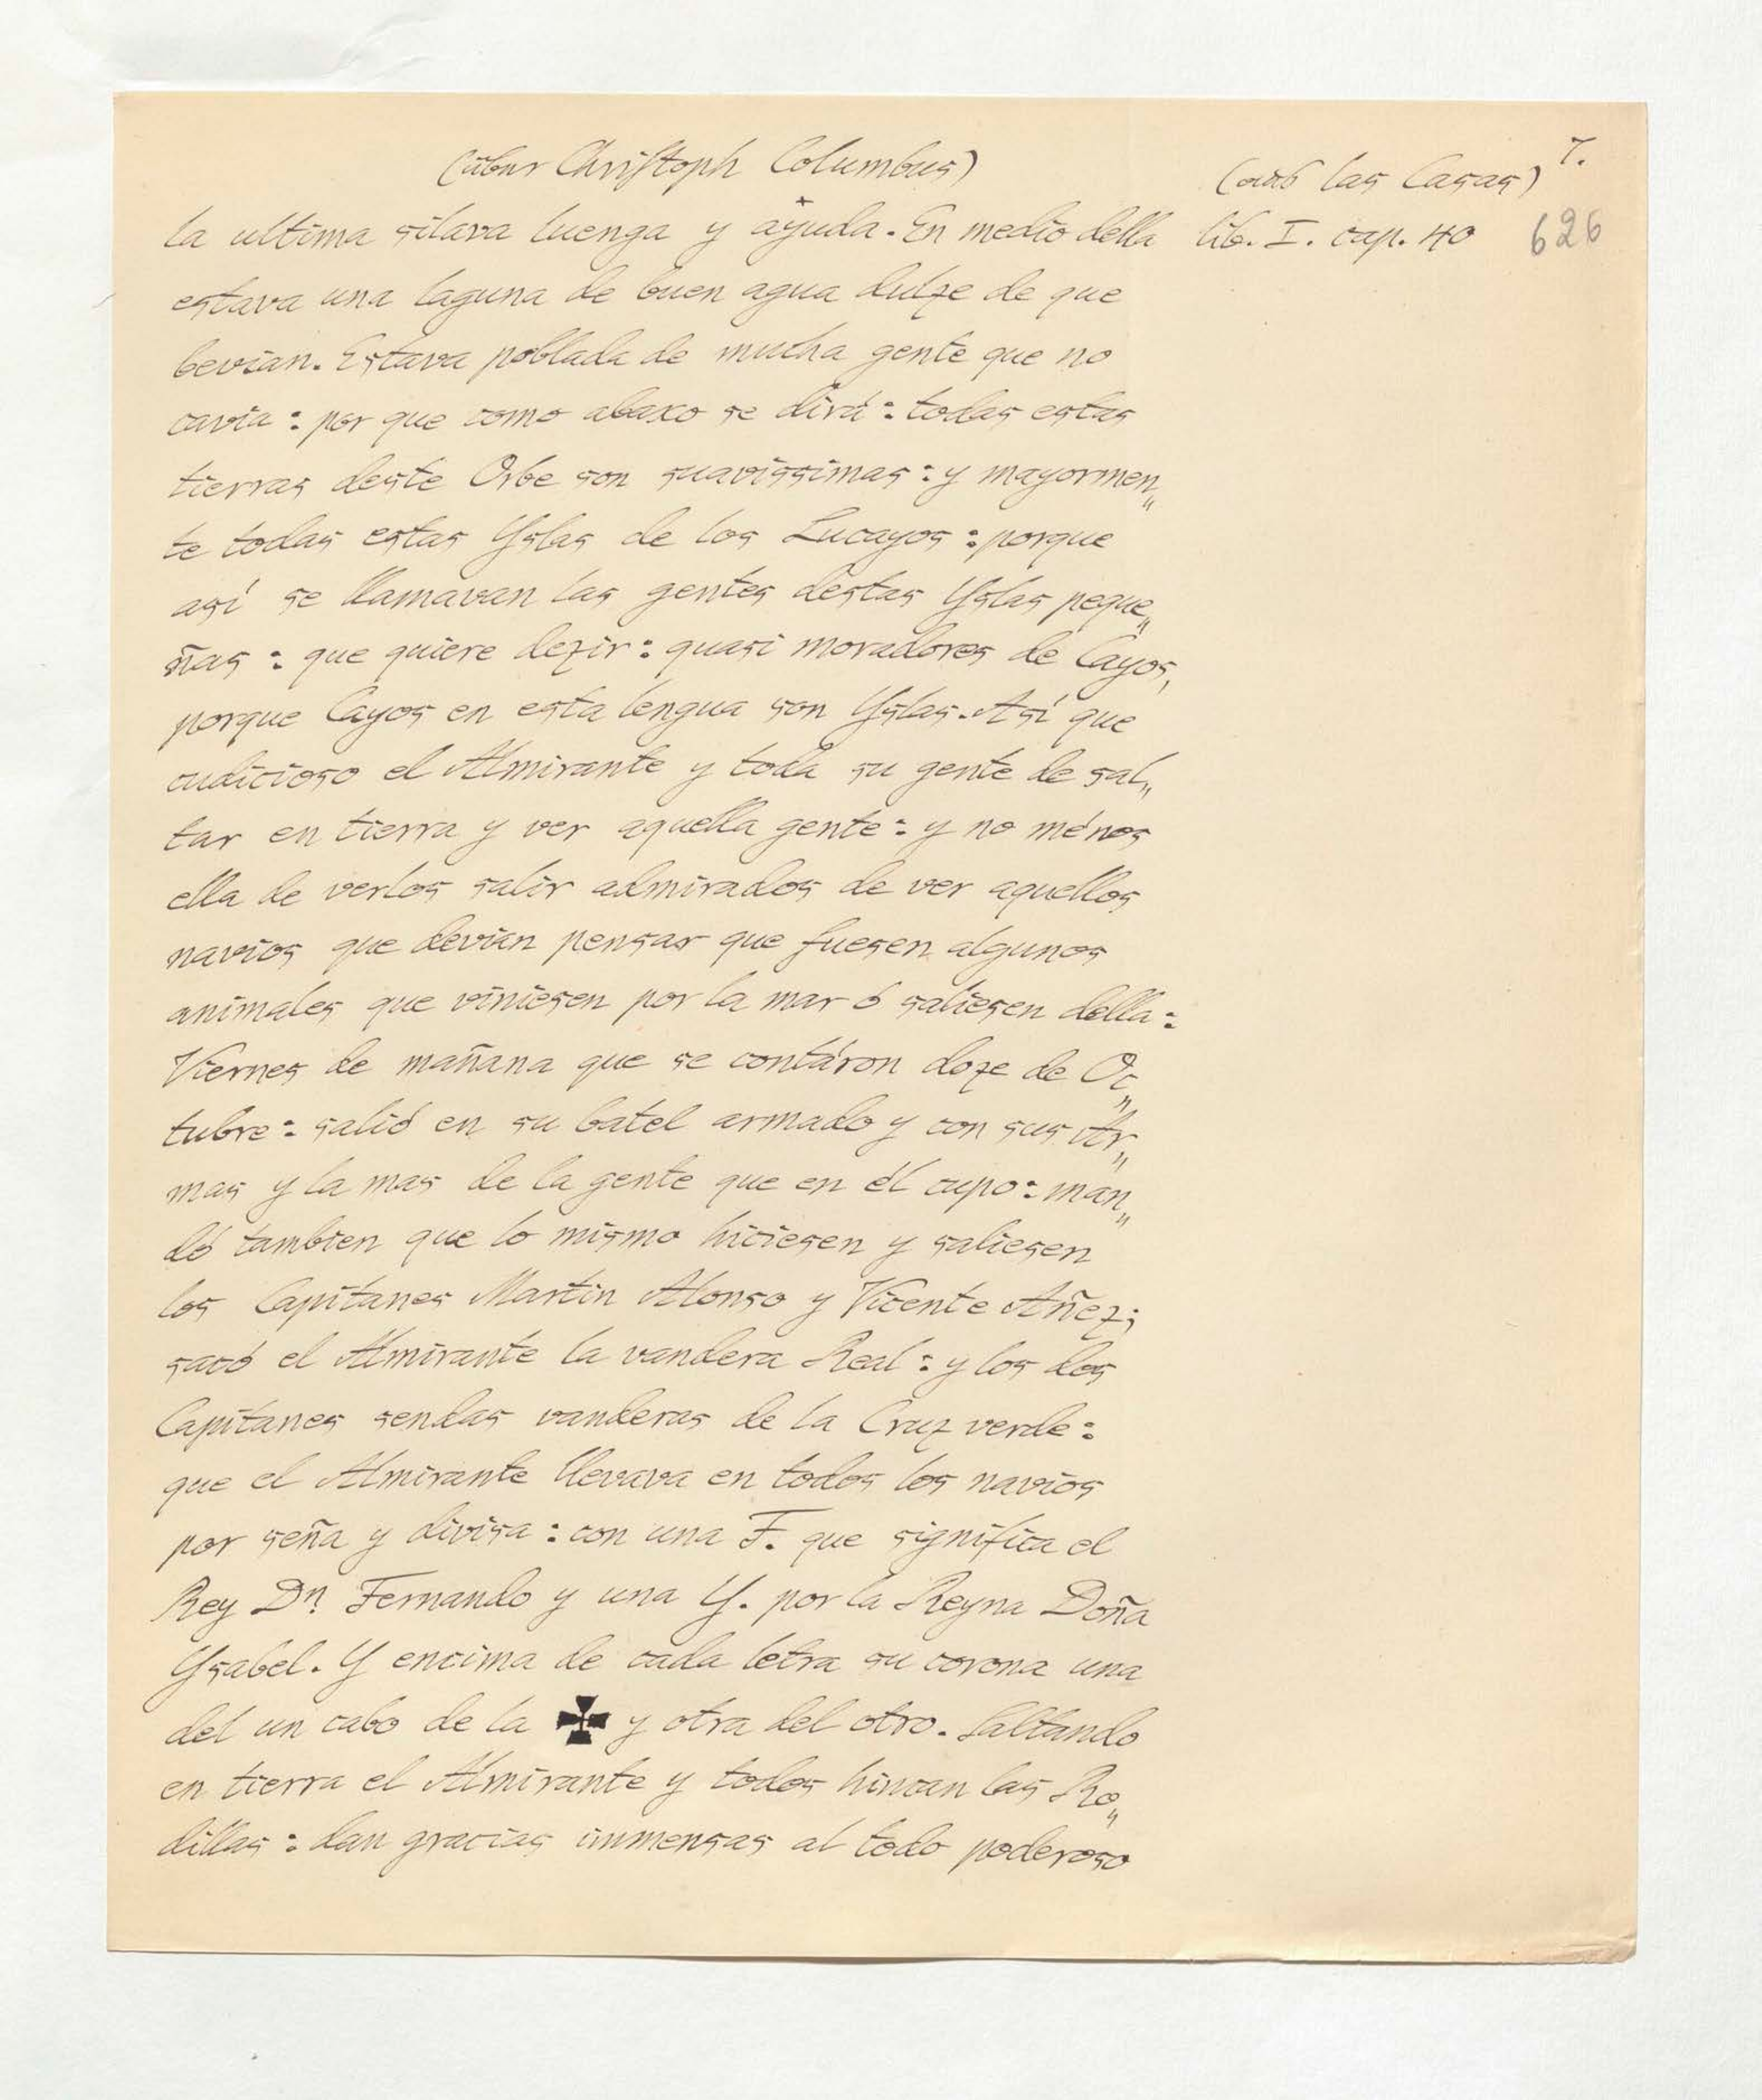 (über Christoph Columbus)
(aus las Casas) 7.
la ultima silava luenga y ayuda. En medio della lib. I. cap. 40 626
estava una laguna de buen agua dulze de que
bevian. Estava poblada de mucha gente que no
cavia: por que como abaxo se dirá: todas estas
tierras deste Orbe son suavissimas: y mayormen„
te todas estas Yslas de los Lucayos: porque
así se llamavan las gentes destas Yslas peque„
ñas: que quiere dezir: quasi moradores de Cayos,
porque Cayos en esta lengua son Yslas. Así que
cudicioso el Almirante y toda su gente de sal„
tar en tierra y ver aquella gente: y no ménos
ella de verlos salir admirados de ver aquellos
navios que devian pensar que fuesen algunos
animales que viniesen por la mar ó saliesen della:
Viernes de mañana que se contáron doze de Oc„
tubre: salió en su batel armado y con sus Ar„
mas y la mas de la gente que en él cupo: man„
dó tambien que lo mismo hiciesen y saliesen
los Capitanes Martin Alonso y Vicente Añez;
sacó el Almirante la vandera Real: y los dos
Capitanes sendas vanderas de la Cruz verde:
que el Almirante llevava en todos los navios
por seña y divisa: con una F. que significa el
Rey Dn. Fernando y una Y. por la Reyna Doña
Ysabel. Y encima de cada letra su corona una
del un cabo de la ✠ y otra del otro. Saltando
en tierra el Almirante y todos hincan las Ro„
dillas: dan gracias immensas al todo poderoso